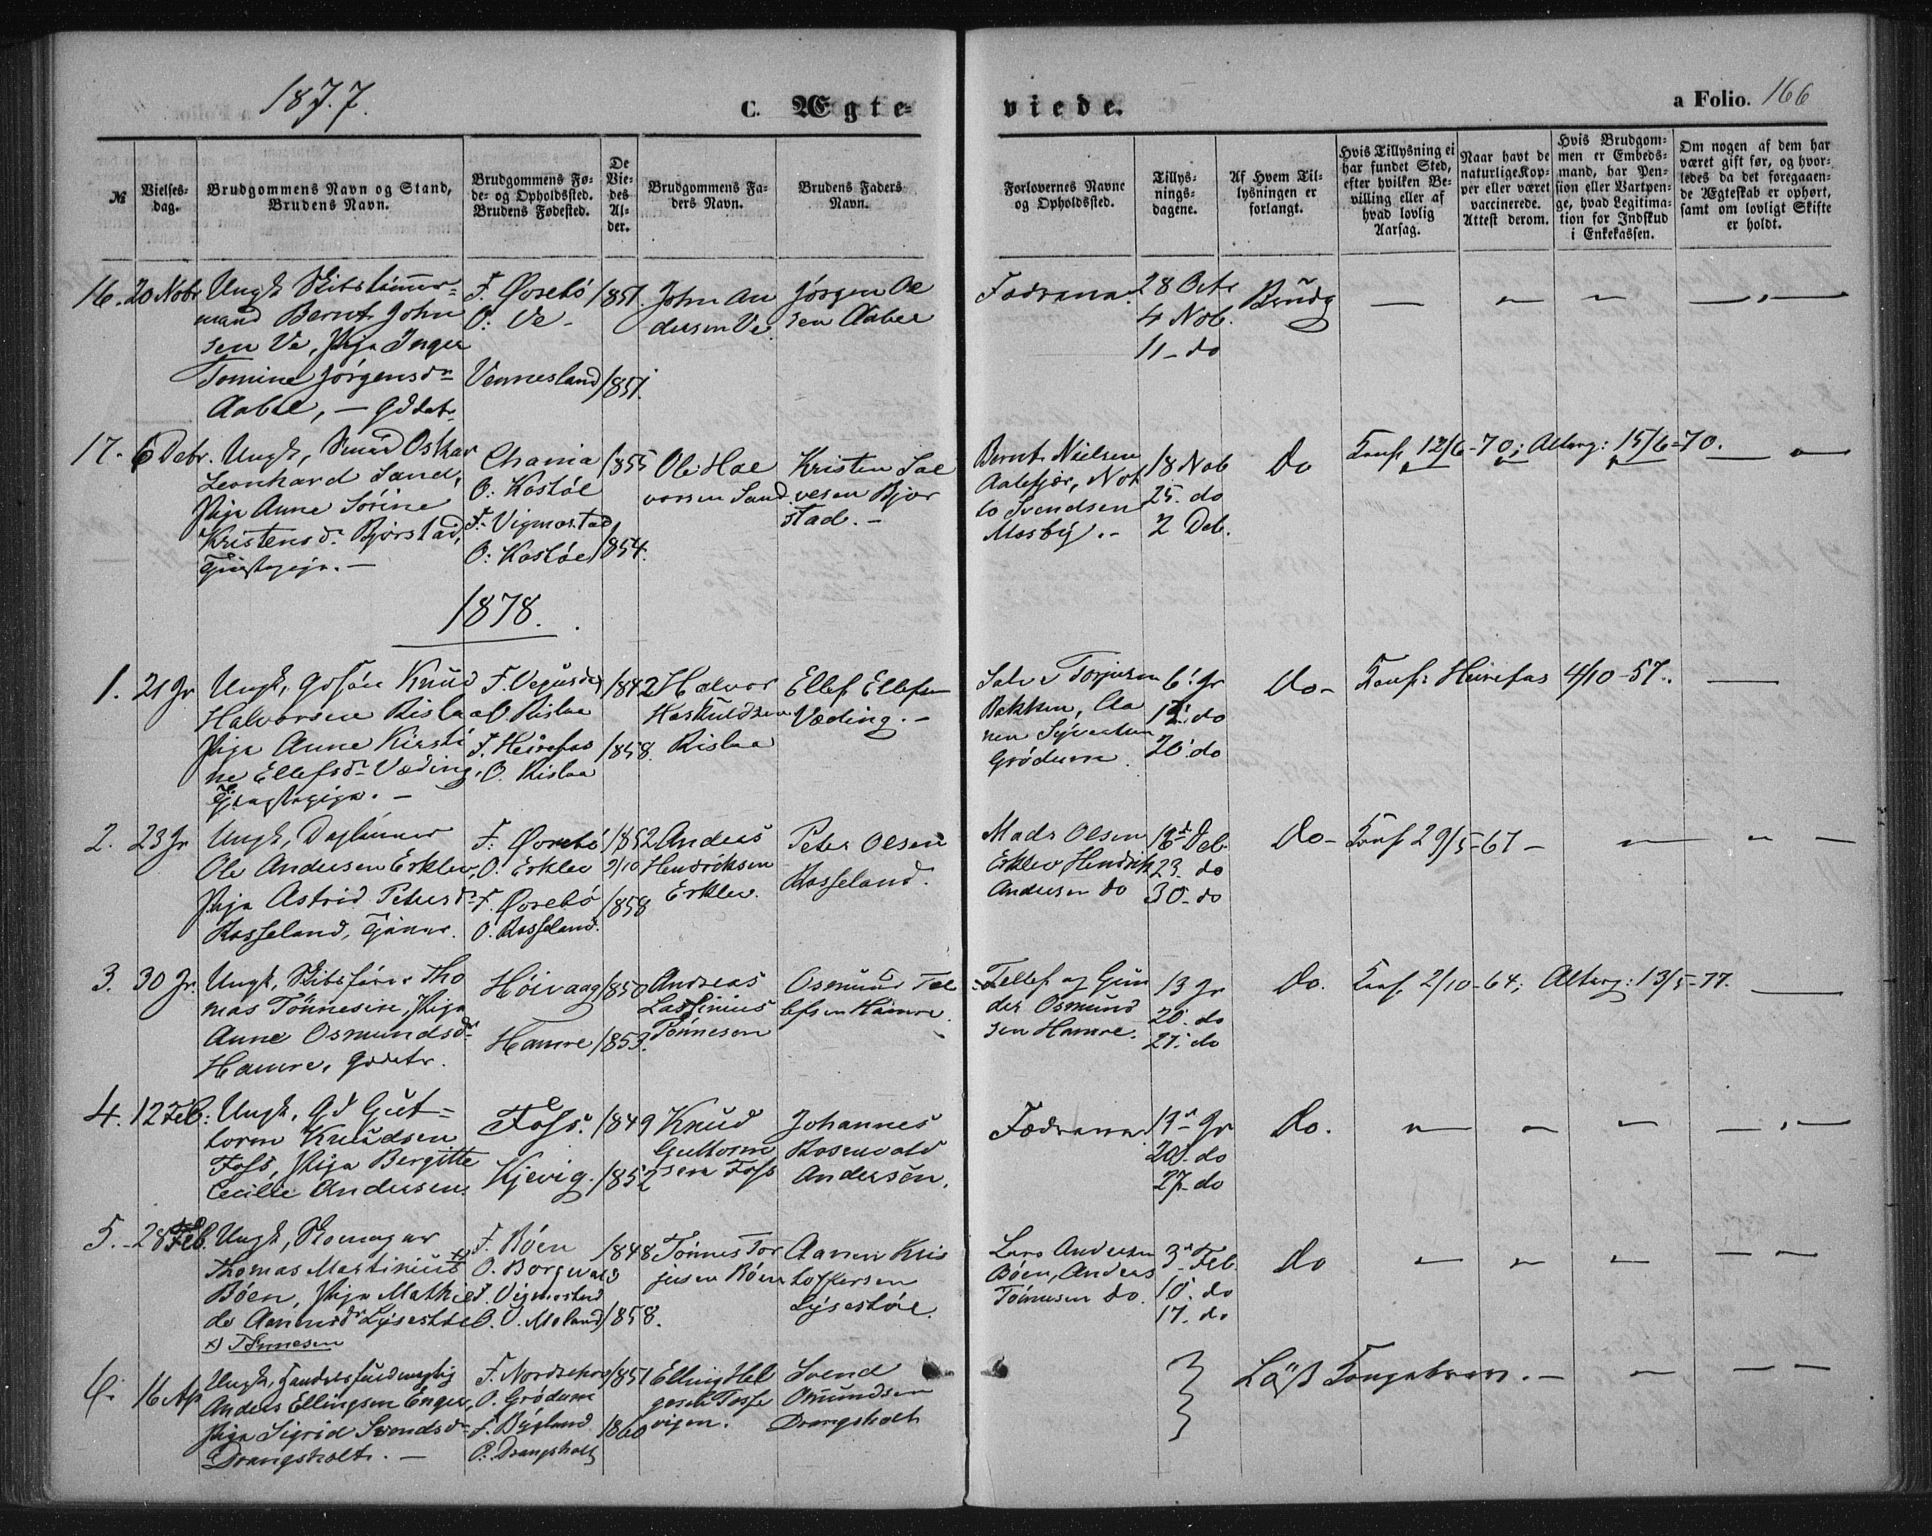 1877.
C. Ægte-
viede.
a Folio. 166
№
Vielses-
dag.
Brudgommens Navn og Stand,
Brudens Navn.
Brudgommens Fø-
de- og Opholdssted.
Brudens Fødested.
De
Vie-
des
Al-
der.
Brudgommens Fa-
ders Navn.
Brudens Faders
Navn.
Forlovernes Navne
og Opholdssted.
Tillys-
nings-
dagene.
Af Hvem Til-
lysningen er
forlangt.
Hvis Tillysning ei
har fundet Sted,
efter hvilken Be-
villing eller af
hvad lovlig
Aarsag.
Naar havt de
naturlige Kop-
per eller været
vaccinerede.
Attest derom.
Hvis Brudgom-
men er Embeds-
mand, har Pen-
sion eller Vartpen-
ge, hvad Legitima-
tion for Indskud
i Enkekassen.
Om nogen af dem har
været gift før, og hvor-
ledes da det foregaaen-
de Ægteskab er ophørt,
samt om lovligt Skifte
er holdt.
16. 20 Nobr
Ungk Skibstømmer=
mand Bernt John
sen Ve, Pige Inger
Tomine Jørgensdr
Aabel, – Gddatr
F. Øvrebö
O: Ve –
Vennesland
1851.
1851.
John An
dersen Ve
Jørgen Ol
sen Aabel
Fædrene.
28 Octr
4 Nob.
11 – do
Brudg
— — — — —
17. 6 Debr.
Ungk, Smed Oskar
Leonhard Sand,
Pige Anne Sörine
Kristensdr. Bjørstad,
Tjenestepige. –
Chania
O: Kostöl
F. Vigmostad
O: Kostöl
1855
1854.
Ole Hal
vorsen Sand.
Kristen Sal
vesen Bjor
stad. –
Bernt Nielsen
Aalefjær, Not
to Svendsen
Mosby. –
18 Nob
25. do
2 Deb.
Do
Konf. 12/6-70; Alterg: 15/6-70. — —
1878.
1. 21 Jr
Ungk, Gdsön Knud
Halvorsen Rislaa
Pige Anne Kirsti
ne Ellefsdr Væding,
Tjenestepige. –
F. Vegusdal
O Rislaa
F. Heirefos
O. Rislaa
1842
1858.
Halvor
Haskuldsen
Rislaa
Ellef Ellefsen
Væding. –
Salve Torjusen
Bakken, Aa
nen Syvertsen
Grödum.
6: Jr
13: do
20: do
Do –
Konf: Heirefos 4/10-57. —
2. 23 Jr
Ungk, Dagl
Ole Andersen Erklev,
Pige Astrid Petersdr
Rosseland,
F. Øvrebö
O. Erklev
F. Øvrebö
O. Rosseland.
1852
2/10
1858
Anders
Hendriksen
Erklev.
Peter Olsen
Rosseland.
Mads Olsen
Erklev, Hendrik
Andersen do
16 Deb.
23. do
30 – do
Do –
Konf 29/5-67 – — — —
3. 30 Jr.
Ungk, Skibsförer Tho
mas Tönnesen, Pige
Anne Osmundsdr
Hamre, Gddatr.
Höivaag
Hamre
1850
1853.
Andreas
Lassinius
Tönnesen
Osmund Tel
lefsen Hamre.
Tellef og Gun
der Osmund
sen Hamre.
13 Jr
20. do
27. do
Do.
Konf. 2/10-64; Alterg: 13/5-77. —
4. 12 Feb:
Ungk, Gd Gut=
torm Knudsen
Foss, Pige Bergitte
Cecilie Andersen.
Foss.
Kjevig.
1849
1852
Knud
Guttorm
sen Foss
Johannes
Rosenvold
Andersen.
Fædrene.
Jr
20. do
27. do
Do.
— — — — —
5. 28 Feb.
Ungk, Skomager
Thomas Martinius x)
Böen, Pige Mathil
de Aanensdr Lysestöl
x) Tönnesen
F. Böen
O. Borgvald
F. Vigmostad
O. V. Moland
1848
1858.
Tönnes Tor
jusen Böen
Aanen Kris
toffersen
Lysestöl.
Lars Andersen
Böen, Anders
Tönnesen do.
3 Feb.
10. do
17. do
Do
— — — — —
6. 16 Ap
Ungk, Handelsfuldmægtig
Anders Ellingsen Enger,
Pige Sigrid Svendsdr
Drangsholt. –
F. Nordrehov
O. Grödum
F. Bygland
O. Drangsholt
1851
1860
Elling Hel
gesen Tosse
vigen.
Svend
Omundsen
Drangsholt
Löst Kongebrev. – — — —